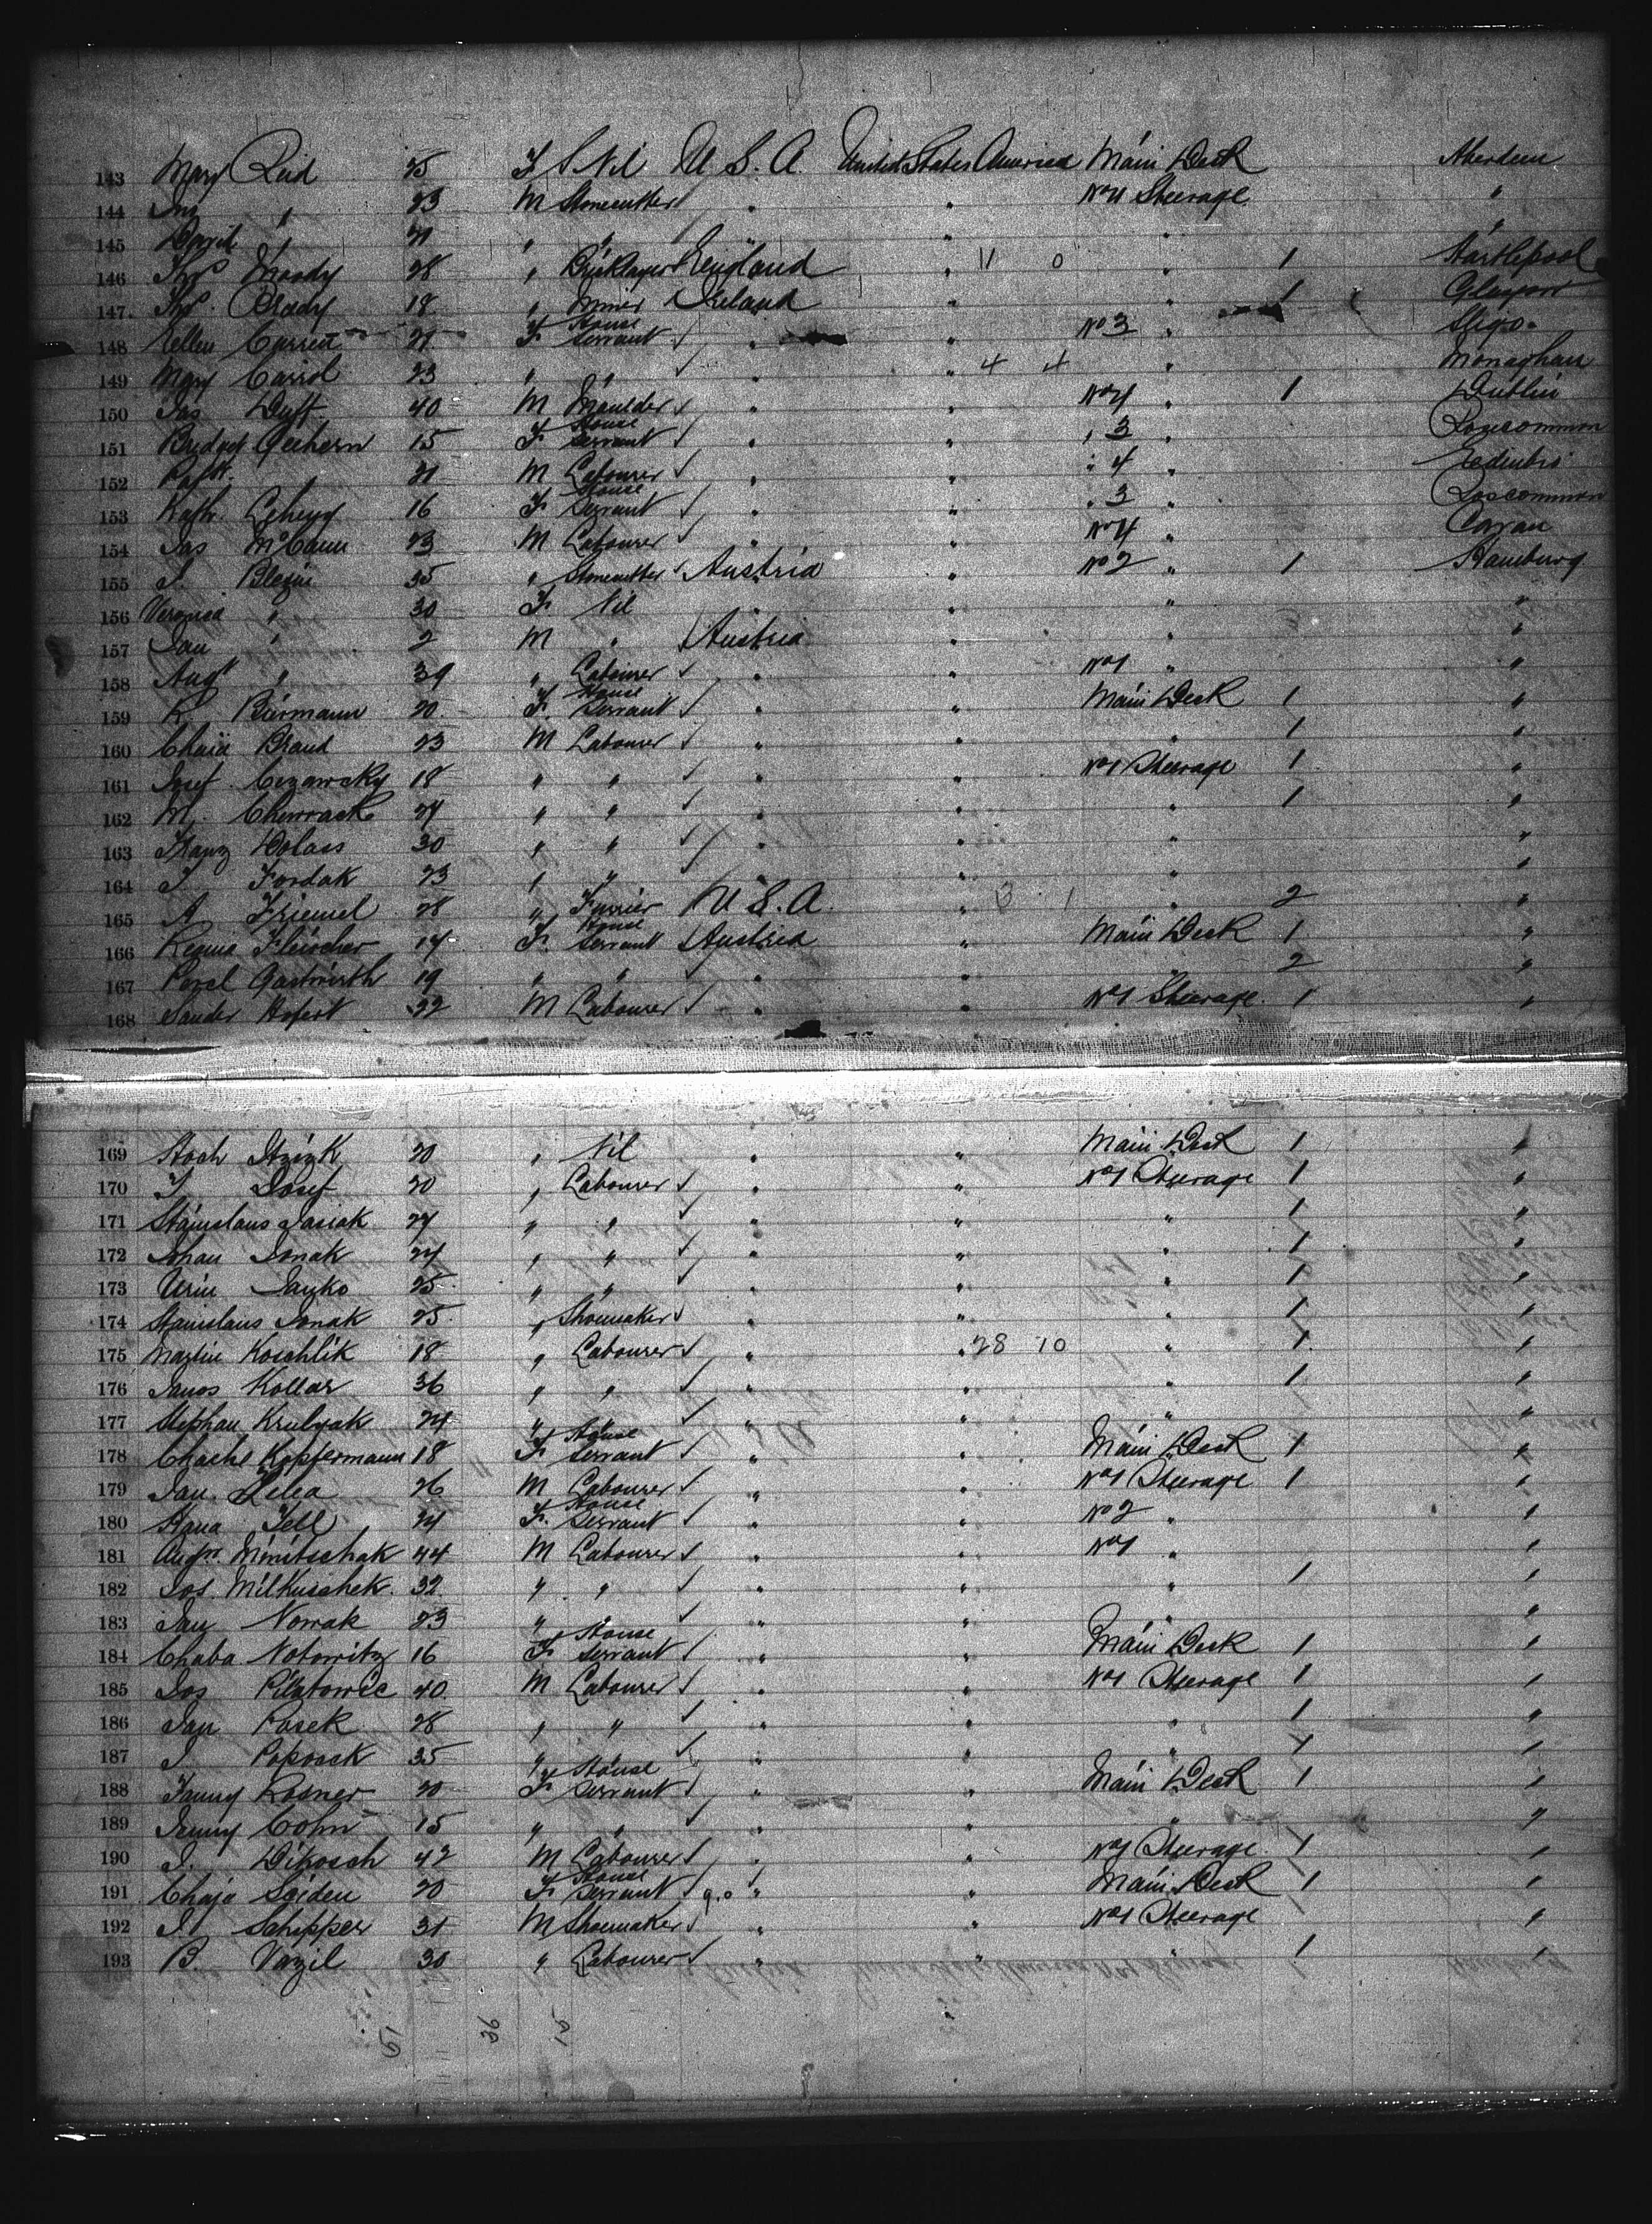 143 Mary Reid 25 F S Nil U.S.A. United States America Main Deck Aberdeen
144 Jno " 23 M Stonecutter " " No 4 Steerage "
145 David " 21 " " " " " "
146 Thos Moody 28 " Bricklayer England " 11 0 " 1 Hartlepool
147 Thos. Brady 18 " Miner Ireland " " 1 Glasgow
148 Ellen 21 F House Servant " " No 3 " Sligo
149 Mary Carrol 23 " " " " 4 4 " Monaghan
150 Jas Duff 40 M Moulder " " No 4 " 1 Dublin
151 Bridget 15 F House Servant " " " 3 " Roscommon
152 Patk. 21 M Labourer " " " 4 " Edinbro
153 Kath. 16 F House Servant " " " 3 " Roscommon
154 Jas McCann 23 M Labourer " " No 4 " Cavan
155 J. 35 " Stonecutter Austria " No 2 " 1 Hamburg
156 Veronica " 30 F Nil " " " "
157 Jan " 2 M " Austria " " "
158 Augt " 39 " Labourer " " No 1 " "
159 R. Biermann 20 F House Servant " " Main Deck 1 "
160 Chaia Brand 23 M Labourer " " " 1 "
161 Josef 18 " " " " No 1 Steerage 1 "
162 M. 24 " " " " " 1 "
163 Franz Dolass 30 " " " " " "
164 J. Fordak 23 " " " " " "
165 A Friemel 28 " Furrier U.S.A. " 3 1 " 2 "
166 Regina Fleischer 17 F House Servant Austria " Main Deck 1 "
167 Perel Gastwirth 19 " " " " " 2 "
168 Sander 32 M Labourer " " No 1 Steerage 1 "
169 Hoch Itzizk 20 " Nil " " Main Deck 1 "
170 J Josef 20 " Labourer " " No 1 Steerage 1 "
171 Stanislaus Jasiak 27 " " " " " 1 "
172 Johan Jonak 24 " " " " " 1 "
173 Urin Janko 25 " " " " " 1 "
174 Stanislaus Jonak 25 " Shoemaker " " " 1 "
175 Martin Koschlik 18 " Labourer " " 28 10 " 1 "
176 Janos Kollar 36 " " " " " 1 "
177 Stephan Krulyak 24 " " " " " "
178 Chache Kopfermann 18 F House Servant " " Main Deck 1 "
179 Jan. Lelea 26 M Labourer " " No 1 Steerage 1 "
180 Hana 24 F House Servant " " No 2 " "
181 Augn. Minitschak 44 M Labourer " " No 1 " "
182 Jos. Milkuschek 32 " " " " " 1 "
183 Jan Nowak 23 " " " " " "
184 Chaba Notowitz 16 F House Servant " " Main Deck 1 "
185 Jos Pilatowic 40 M Labourer " " No 1 Steerage 1 "
186 Jan Posek 28 " " " " " 1 "
187 J. Popovack 35 " " " " " 1 "
188 Fanny Rosner 20 F House Servant " " Main Deck 1 "
189 Jenny Cohn 15 " " " " " "
190 J. Dikosch 42 M Labourer " " No 1 Steerage 1 "
191 Chaja Seiden 20 F House Servant g.o " " Main Deck 1 "
192 J. Schipper 31 M Shoemaker " " No 1 Steerage "
193 B. Vazil 30 " Labourer " " " 1 "
51 36 15